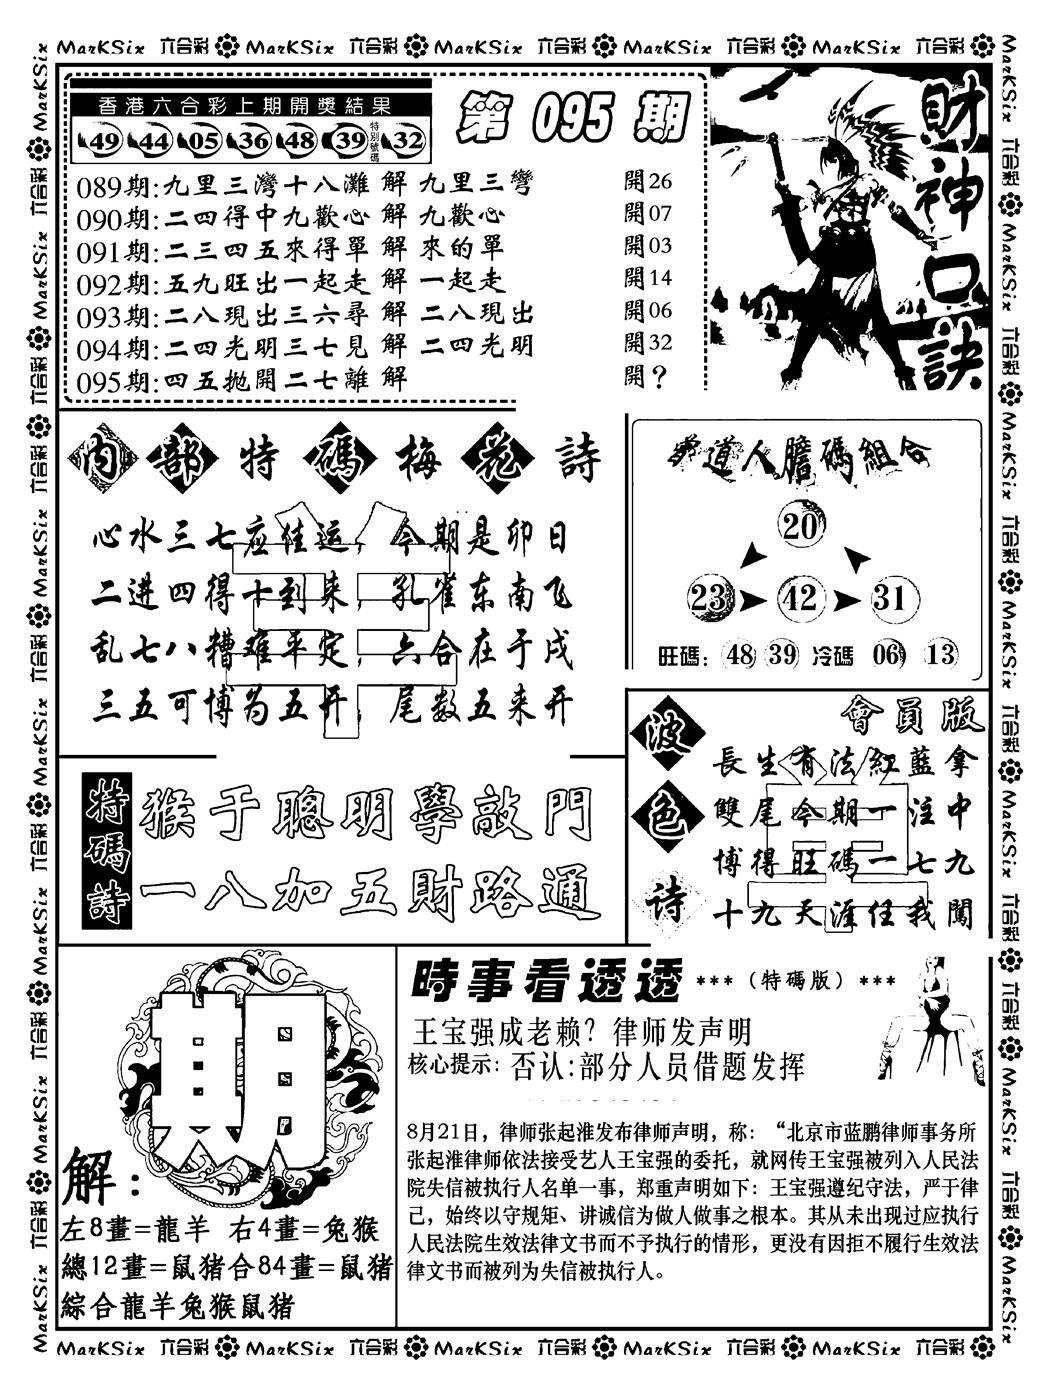 MarKSix 六合彩 MarKSix 六合彩 MarKSix 六合彩 MarKSix 六合彩 MarKSix 六合彩
香港六合彩上期開獎結果
49 44 05 36 48 39 特別號碼 32
第 095 期
089期:九里三灣十八灘 解 九里三彎 開26
090期:二四得中九歡心 解 九歡心 開07
091期:二三四五來得單 解 來的單 開03
092期:五九旺出一起走 解 一起走 開14
093期:二八現出三六尋 解 二八現出 開06
094期:二四光明三七見 解 二四光明 開32
095期:四五抛開二七離 解 開?
財神口訣
内部特碼梅花詩
心水三七应佳运，今期是卯日
二进四得十到来，孔雀东南飞
乱七八糟难平定，六合在于戌
三五可博为五开，尾数五来开
道人膽碼組合
20
23 42 31
旺碼: 48 39 冷碼 06 13
特碼詩
猴于聰明學敲門
一八加五財路通
波色诗
會員版
長生有法紅藍拿
雙尾今期一注中
博得旺碼一七九
十九天涯任我闖
期
解:
左8畫=龍羊 右4畫=兔猴
總12畫=鼠猪合84畫=鼠猪
綜合龍羊兔猴鼠猪
時事看透透 ***（特碼版）***
王宝强成老赖？律师发声明
核心提示: 否认:部分人员借题发挥
8月21日，律师张起淮发布律师声明，称：“北京市蓝鹏律师事务所
张起淮律师依法接受艺人王宝强的委托，就网传王宝强被列入人民法
院失信被执行人名单一事，郑重声明如下：王宝强遵纪守法，严于律
己，始终以守规矩、讲诚信为做人做事之根本。其从未出现过应执行
人民法院生效法律文书而不予执行的情形，更没有因拒不履行生效法
律文书而被列为失信被执行人。
MarKSix 六合彩 MarKSix 六合彩 MarKSix 六合彩 MarKSix 六合彩 MarKSix 六合彩